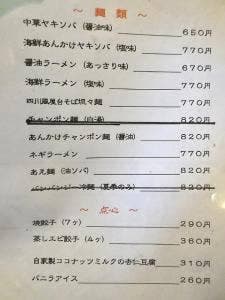 ～ 麺類 ～
中華ヤキソバ (醤油味) 650円
海鮮あんかけヤキソバ (塩味) 770円
醤油ラーメン (あっさり味) 670円
海鮮ラーメン (塩味) 770円
四川風屋台そば坦々麺 770円
チャンポン麺 (白湯) 820円
あんかけチャンポン麺 (醤油) 820円
ネギラーメン 770円
あえ麺 (油ソバ) 820円
バンバンジー冷麺 (夏季のみ) 820円
～ 点心 ～
焼餃子 (7ヶ) 290円
蒸しエビ餃子 (4ヶ) 360円
自家製ココナッツミルクの杏仁豆腐 310円
バニラアイス 260円